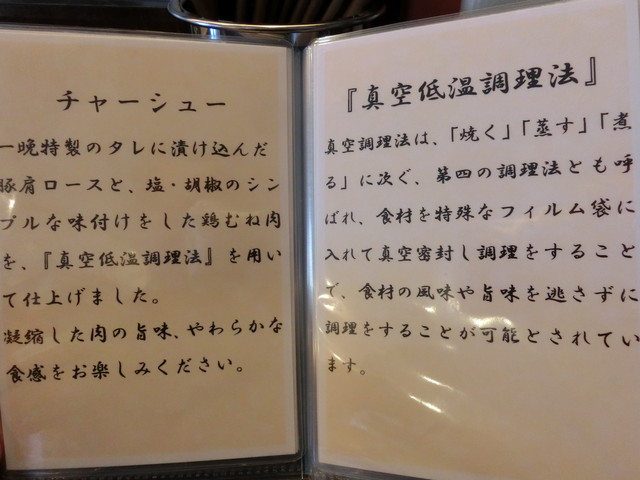 チャーシュー
一晩特製のタレに漬け込んだ
豚肩ロースと、塩・胡椒のシン
プルな味付けをした鶏むね肉
を、『真空低温調理法』を用い
て仕上げました。
凝縮した肉の旨味、やわらかな
食感をお楽しみください。
『真空低温調理法』
真空調理法は、「焼く」「蒸す」「煮
る」に次ぐ、第四の調理法とも呼
ばれ、食材を特殊なフィルム袋に
入れて真空密封し調理をすること
で、食材の風味や旨味を逃さずに
調理をすることが可能とされてい
ます。